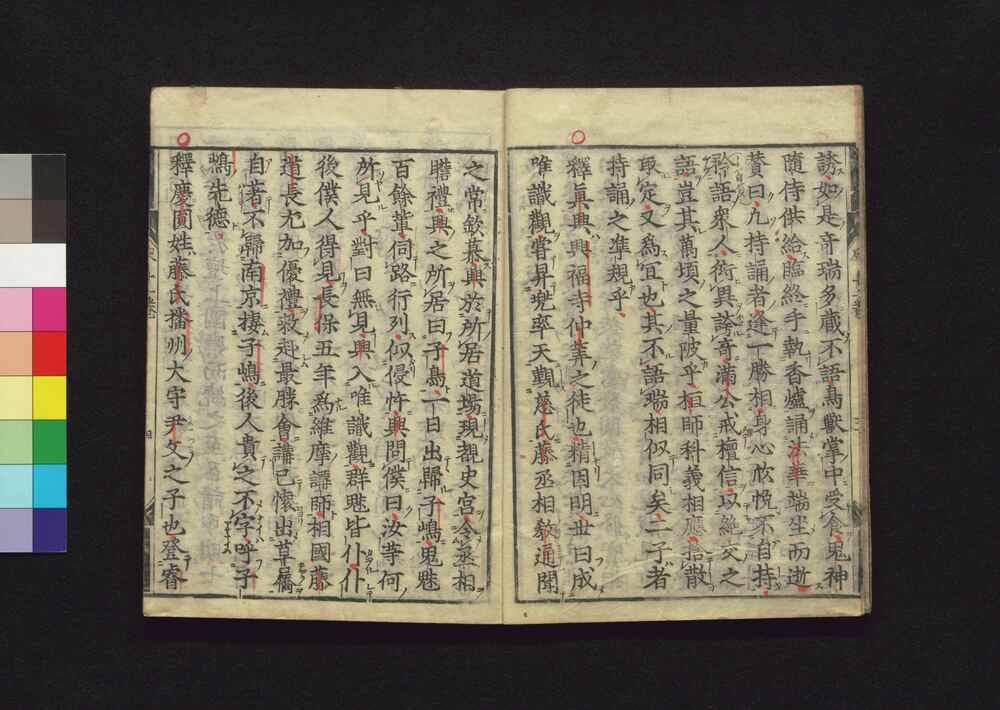 誘如是奇瑞多蔵不語鳥獸掌中受食鬼神
隨侍供給臨終手執香爐誦法華端坐而逝
賛曰凡持誦者逢一勝相身心欣悅不自持
矜語衆人衒異誇奇滿公戒檀信以絶交之
語豈其萬頃之量陂乎恒師科義相應恬散
取定又為宜也其不語瑞相似同矣二子者
持誦之準規乎
釋真興興福寺仲筭之徒也精因明世曰成
唯識觀嘗昇兜率天覲慈氏藤丞相欽道聞
之常欽慕興於所居道場現覩史宮令丞相
瞻禮興之所居曰子島一日出歸子嶋鬼魅
百餘輩伺路行列似侵忤興問僕曰汝等何
所見乎對曰無見興入唯識觀群魅皆仆仆
後僕人得見長保五年為維摩講師相國藤
道長尤加優禮敎赴最勝會講已懷出草屩
自著不歸南京棲子嶋後人貴之不字呼子
嶋先德
釋慶圓姓藤氏播州大守尹文之子也登睿